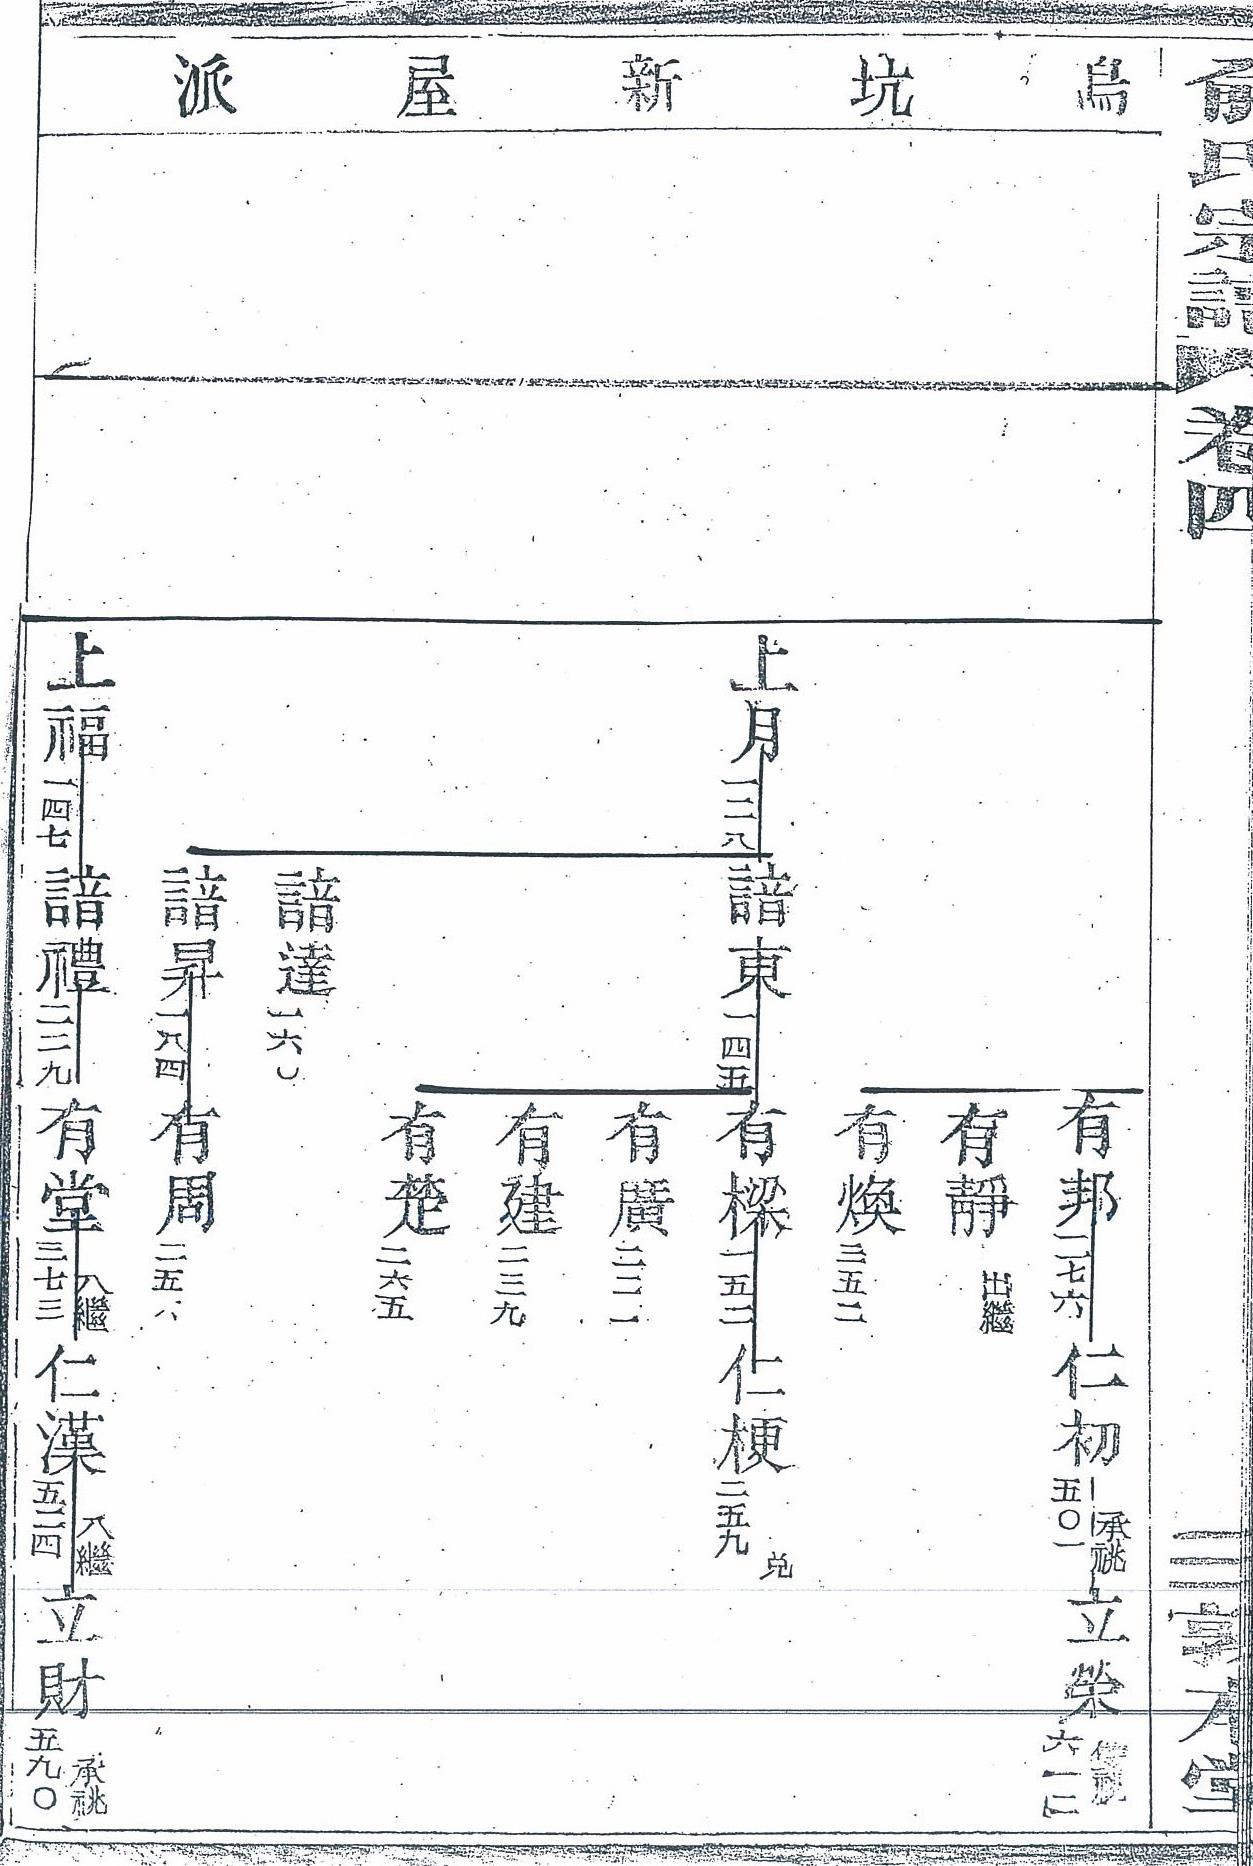 俞氏宗譜
卷四
三
敦本堂
烏坑新屋派
有邦
二七六
仁初
五〇一
承祧
立榮
六一二
有靜
出繼
有煥
三五二
上月
一二八
諳東
一四五
有樑
一五二
仁梗
二五九
兌
有廣
二二一
有建
二三九
有楚
二六五
諳達
一六〇
諳昇
一八四
有周
上福
一四七
諳禮
二二九
有堂
三七三
入繼
仁漢
五二四
入繼
立財
五九〇
承祧